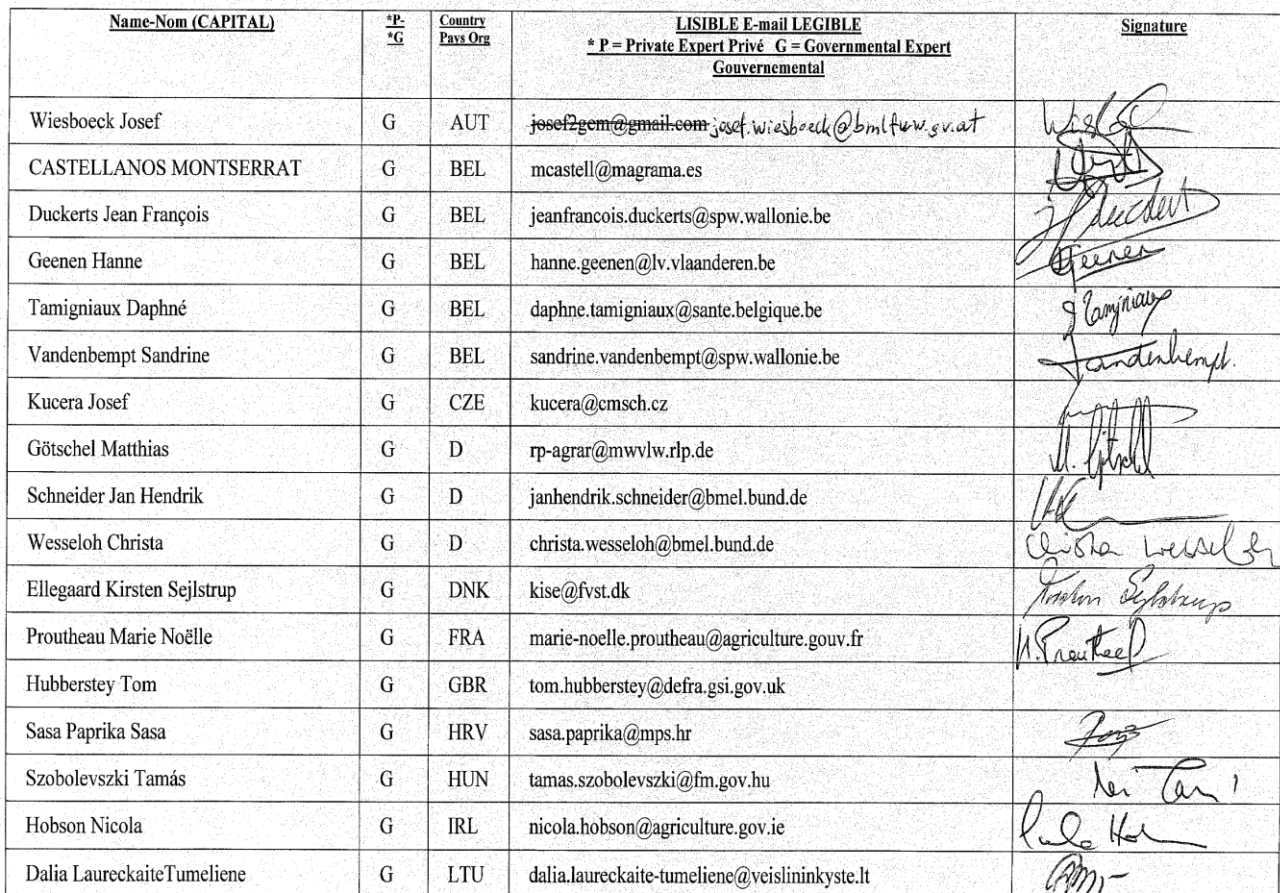 Name-Nom (CAPITAL) *P- *G Country Pays Org LISIBLE E-mail LEGIBLE * P = Private Expert Privé G = Governmental Expert Gouvernemental Signature
Wiesboeck Josef G AUT josef2gem@gmail.com josef.wiesboeck@bmlfuw.gv.at
CASTELLANOS MONTSERRAT G BEL mcastell@magrama.es
Duckerts Jean François G BEL jeanfrancois.duckerts@spw.wallonie.be
Geenen Hanne G BEL hanne.geenen@lv.vlaanderen.be Geenen
Tamigniaux Daphné G BEL daphne.tamigniaux@sante.belgique.be
Vandenbempt Sandrine G BEL sandrine.vandenbempt@spw.wallonie.be Vandenbempt.
Kucera Josef G CZE kucera@cmsch.cz
Götschel Matthias G D rp-agrar@mwvlw.rlp.de
Schneider Jan Hendrik G D janhendrik.schneider@bmel.bund.de
Wesseloh Christa G D christa.wesseloh@bmel.bund.de Christa Wesseloh
Ellegaard Kirsten Sejlstrup G DNK kise@fvst.dk
Proutheau Marie Noëlle G FRA marie-noelle.proutheau@agriculture.gouv.fr
Hubberstey Tom G GBR tom.hubberstey@defra.gsi.gov.uk
Sasa Paprika Sasa G HRV sasa.paprika@mps.hr
Szobolevszki Tamás G HUN tamas.szobolevszki@fm.gov.hu
Hobson Nicola G IRL nicola.hobson@agriculture.gov.ie
Dalia LaureckaiteTumeliene G LTU dalia.laureckaite-tumeliene@veislininkyste.lt